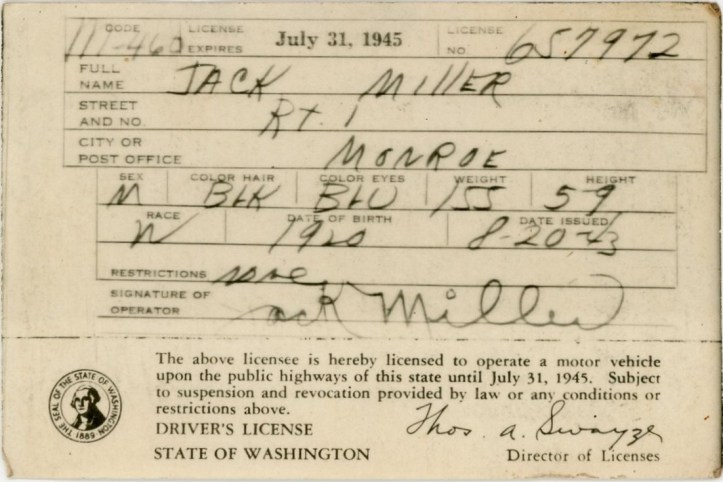 CODE LICENSE EXPIRES July 31, 1945 LICENSE NO 657972
111-460
FULL NAME JACK MILLER
STREET AND NO. Rt. 1
CITY OR POST OFFICE MONROE
SEX COLOR HAIR COLOR EYES WEIGHT HEIGHT
M BLK BLU 155 5-9
RACE DATE OF BIRTH DATE ISSUED
W 1920 8-20-43
RESTRICTIONS none
SIGNATURE OF OPERATOR Jack Miller
The above licensee is hereby licensed to operate a motor vehicle
upon the public highways of this state until July 31, 1945. Subject
to suspension and revocation provided by law or any conditions or
restrictions above.
DRIVER'S LICENSE Thos. A. Swayze
STATE OF WASHINGTON Director of Licenses
THE SEAL OF THE STATE OF WASHINGTON
1889